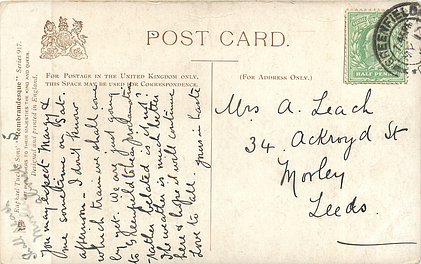 POST CARD.
FOR POSTAGE IN THE UNITED KINGDOM ONLY,
THIS SPACE MAY BE USED FOR CORRESPONDENCE.
(FOR ADDRESS ONLY.)
Raphael Tuck & Sons' "Rembrandtesque" Series 917.
ART PUBLISHERS TO THEIR MAJESTIES THE KING AND QUEEN.
Designed and printed in England.
you may expect Mary &
me sometime on Sat.
afternoon - I don't know
which train we shall come
by yet. We are just going
to Greenfield to hear
rather belated is it not?
The weather is much better
here & hope it will continue
Love to all.
yours in haste
Mrs A. Leach
34. Ackroyd St
Morley
Leeds.
GREENFIELD
HALF PENNY